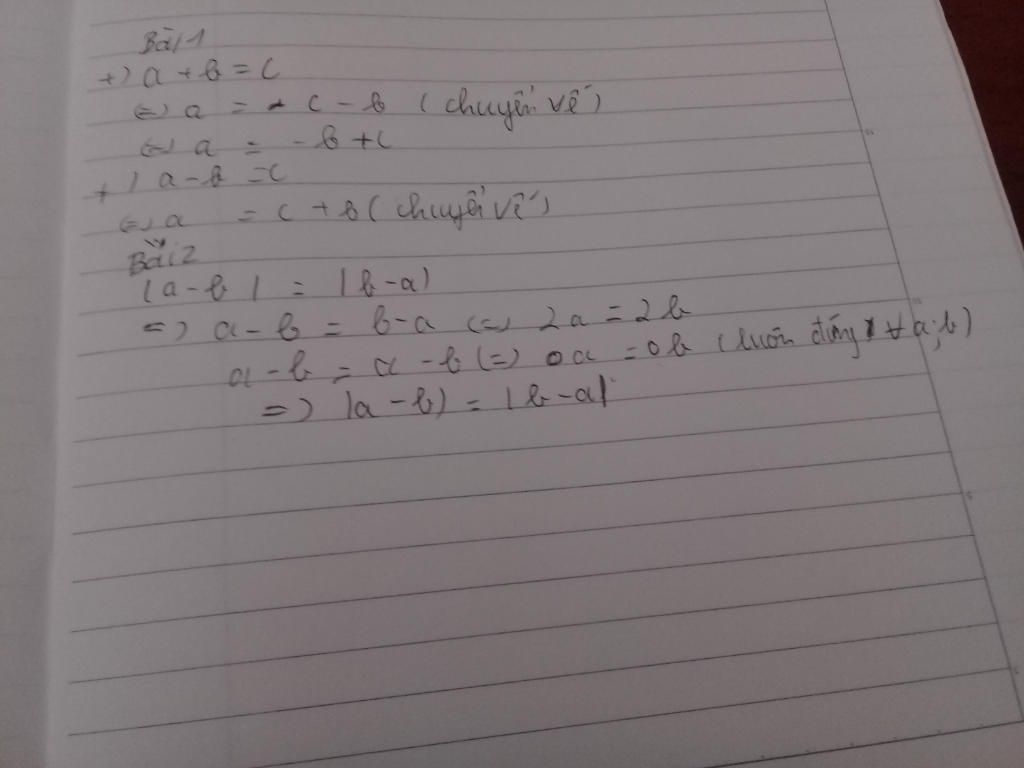 Bài 1
+) a + b = c
<=> a = c - b (chuyển vế)
<=> a = -b + c
+) a - b = c
<=> a = c + b (chuyển vế)
Bài 2
|a - b| = |b - a|
=> a - b = b - a <=> 2a = 2b
a - b = a - b <=> 0a = 0b (luôn đúng ∀ a; b)
=> |a - b| = |b - a|